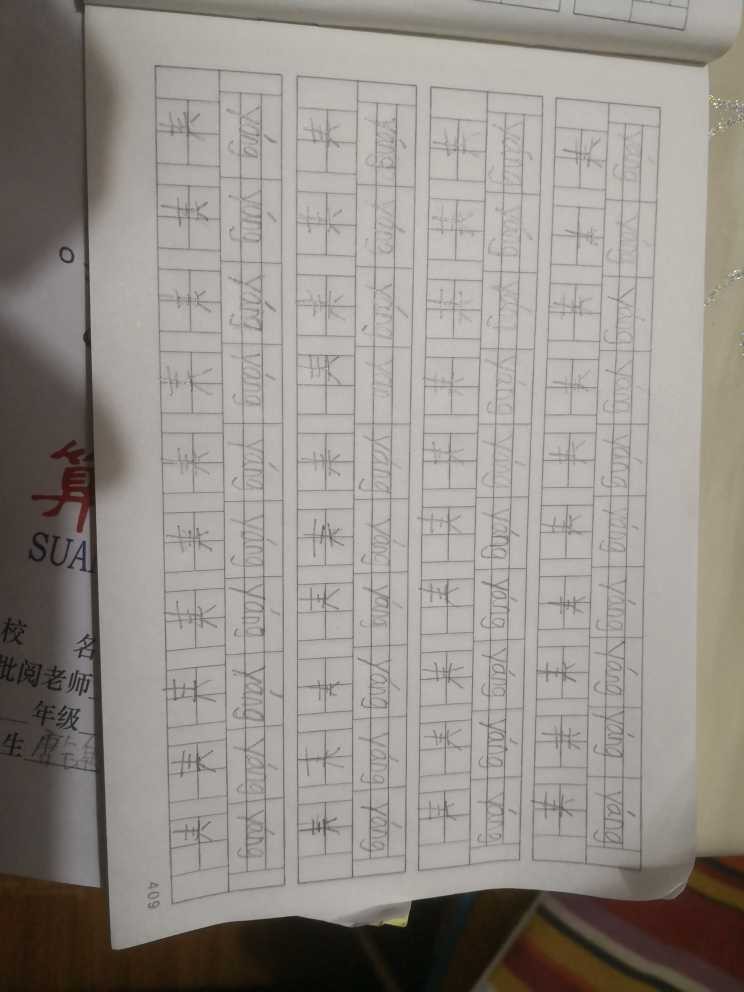 yáng yáng yáng yáng yáng yáng yáng yáng yáng yáng
羊 羊 羊 羊 羊 羊 羊 羊 羊 羊
yáng yáng yáng yáng yáng yáng yáng yáng yáng yáng
羊 羊 羊 羊 羊 羊 羊 羊 羊 羊
yáng yáng yáng yáng yáng yáng yáng yáng yáng
羊 羊 羊 羊 羊 羊 羊 羊 羊 羊
yáng yáng yáng yáng yáng yáng yáng yáng yáng yáng
羊 羊 羊 羊 羊 羊 羊 羊 羊 羊
409
算
SUA
校 名
批阅老师
年级
生